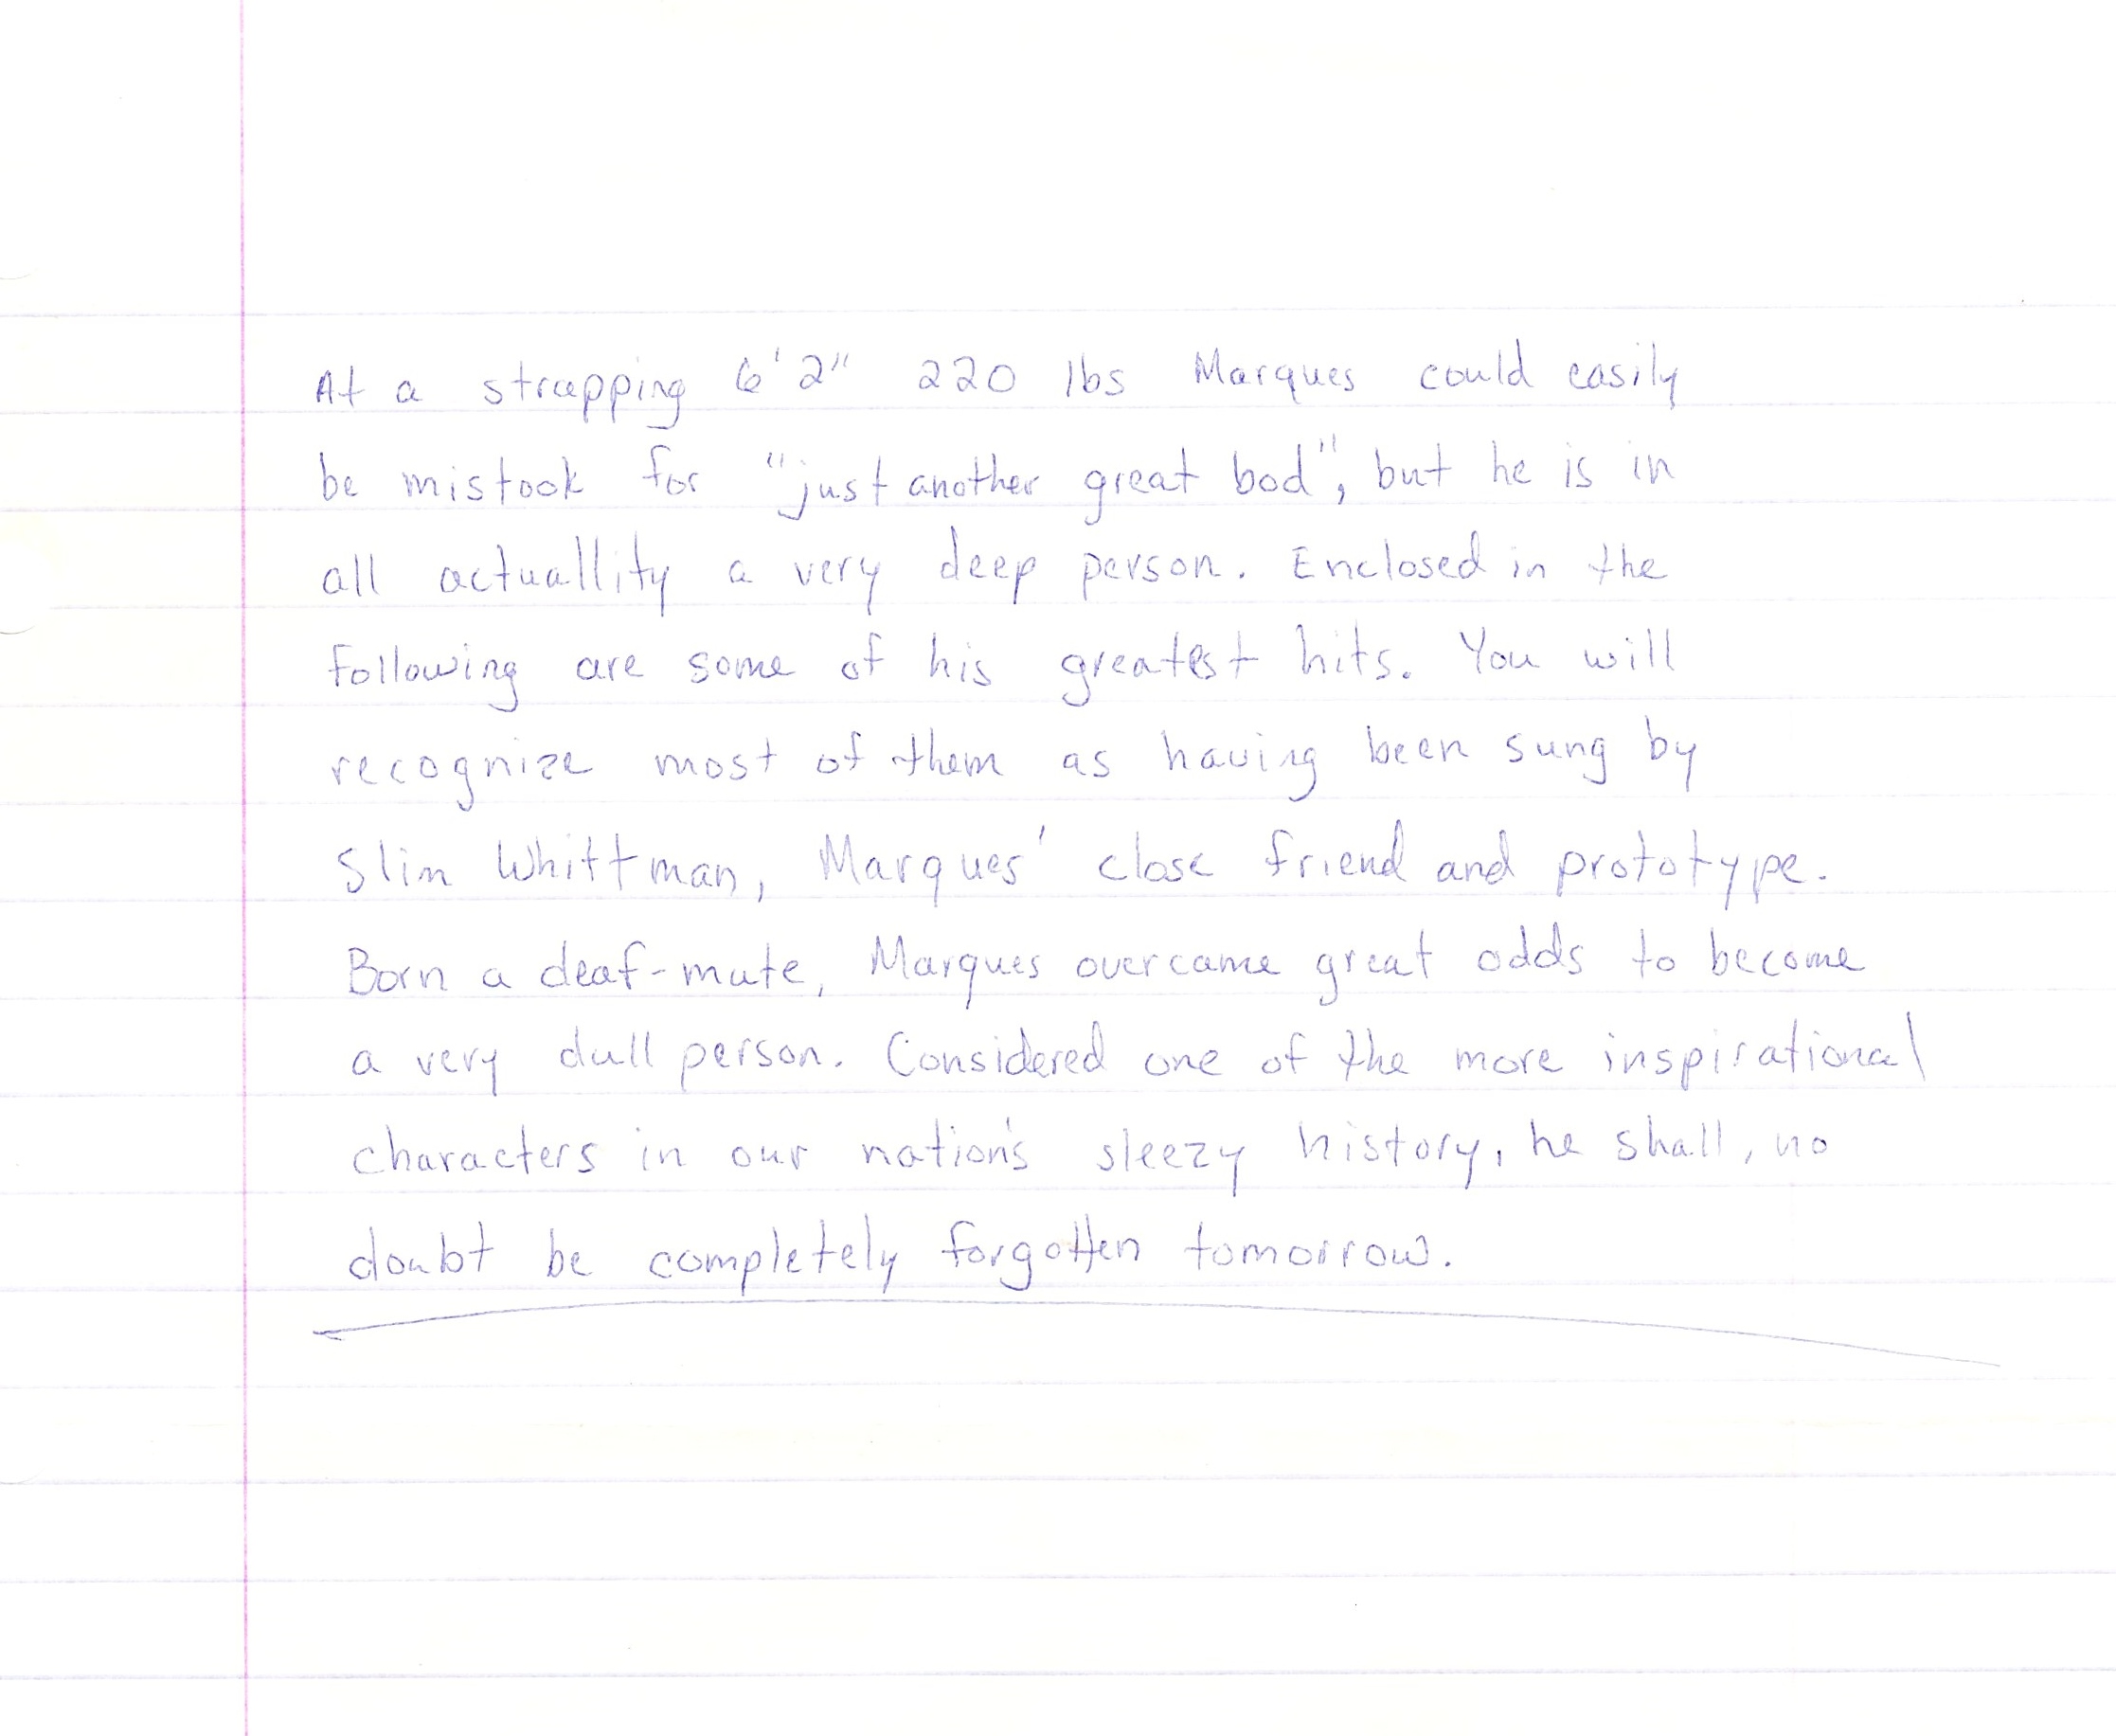 At a strapping 6'2" 220 lbs Marques could easily
be mistook for "just another great bod", but he is in
all actuallity a very deep person. Enclosed in the
following are some of his greatest hits. You will
recognize most of them as having been sung by
Slim Whittman, Marques' close friend and prototype.
Born a deaf-mute, Marques overcame great odds to become
a very dull person. Considered one of the more inspirational
characters in our nation's sleezy history, he shall, no
doubt be completely forgotten tomorrow.